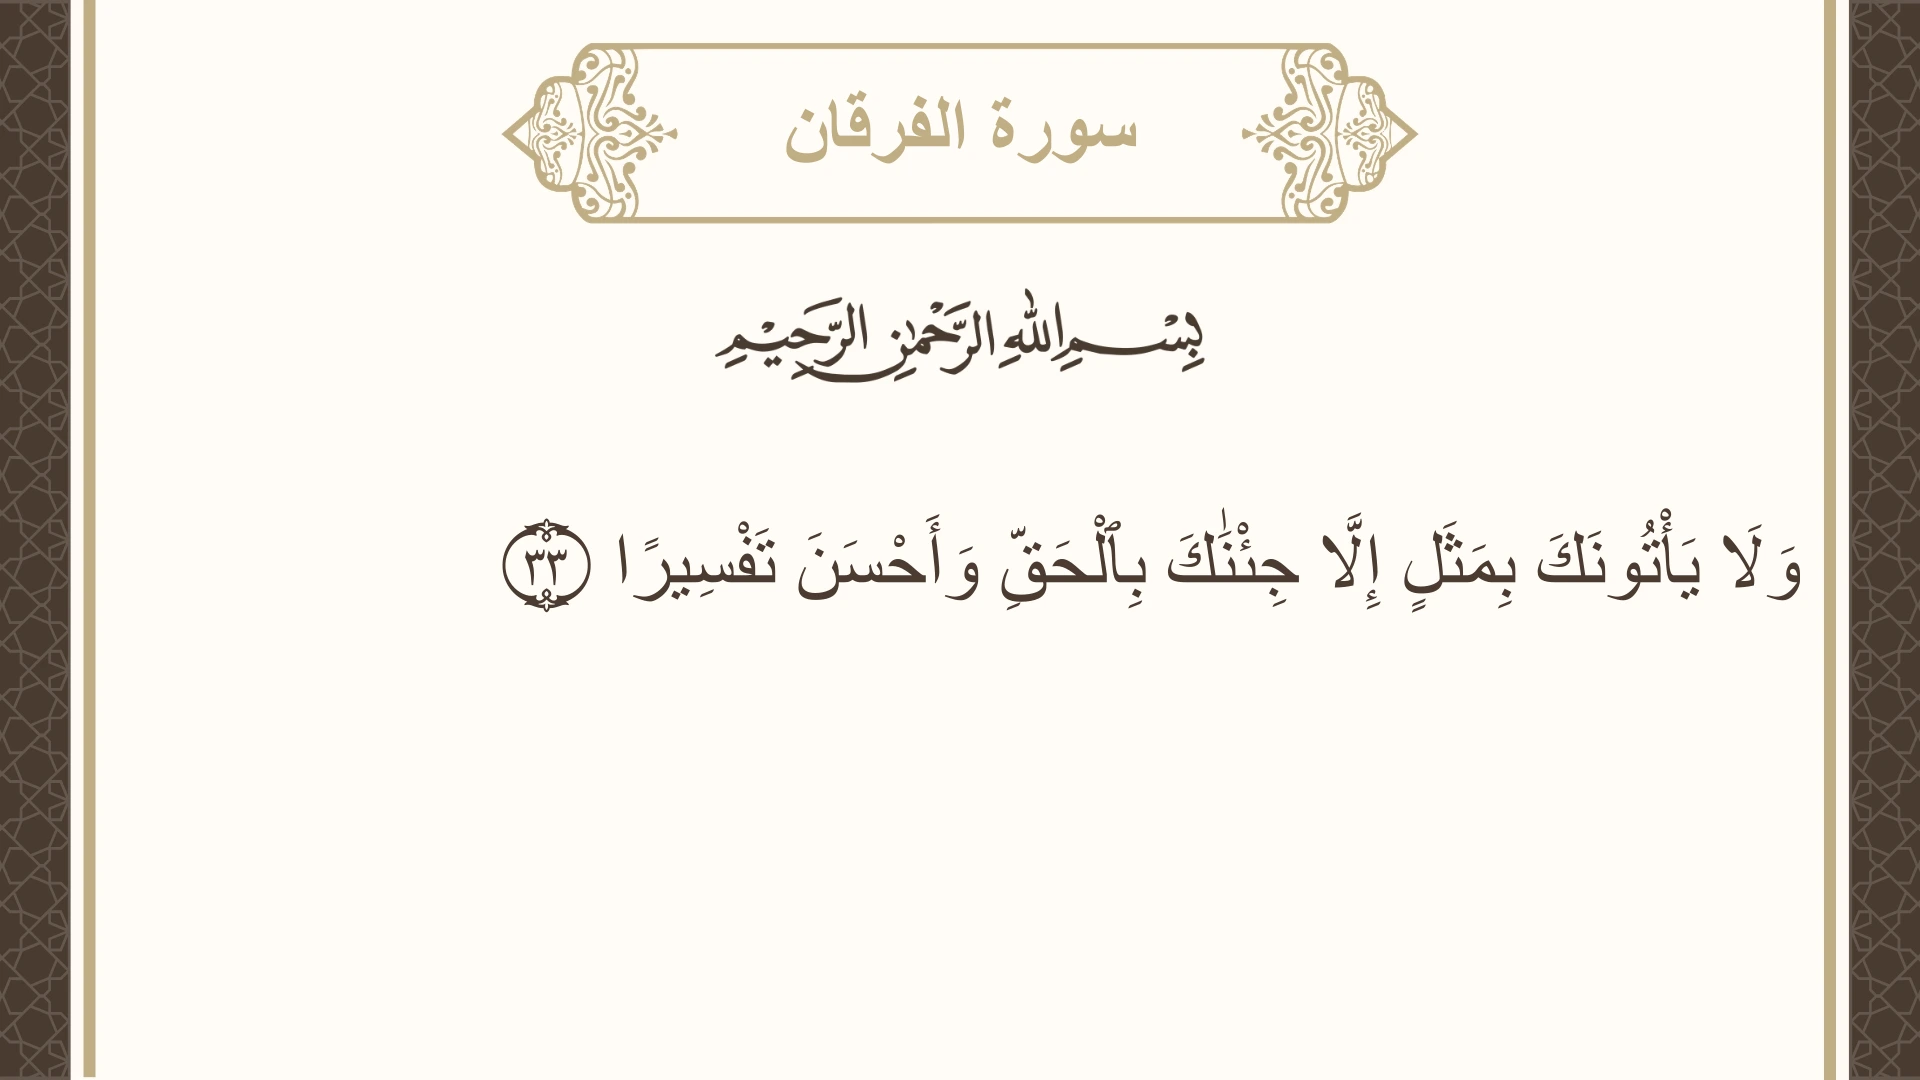 سورة الفرقان
بِسْمِ اللهِ الرَّحْمٰنِ الرَّحِيْمِ
وَلَا يَأْتُونَكَ بِمَثَلٍ إِلَّا جِئْنَٰكَ بِٱلْحَقِّ وَأَحْسَنَ تَفْسِيرًا ٣٣